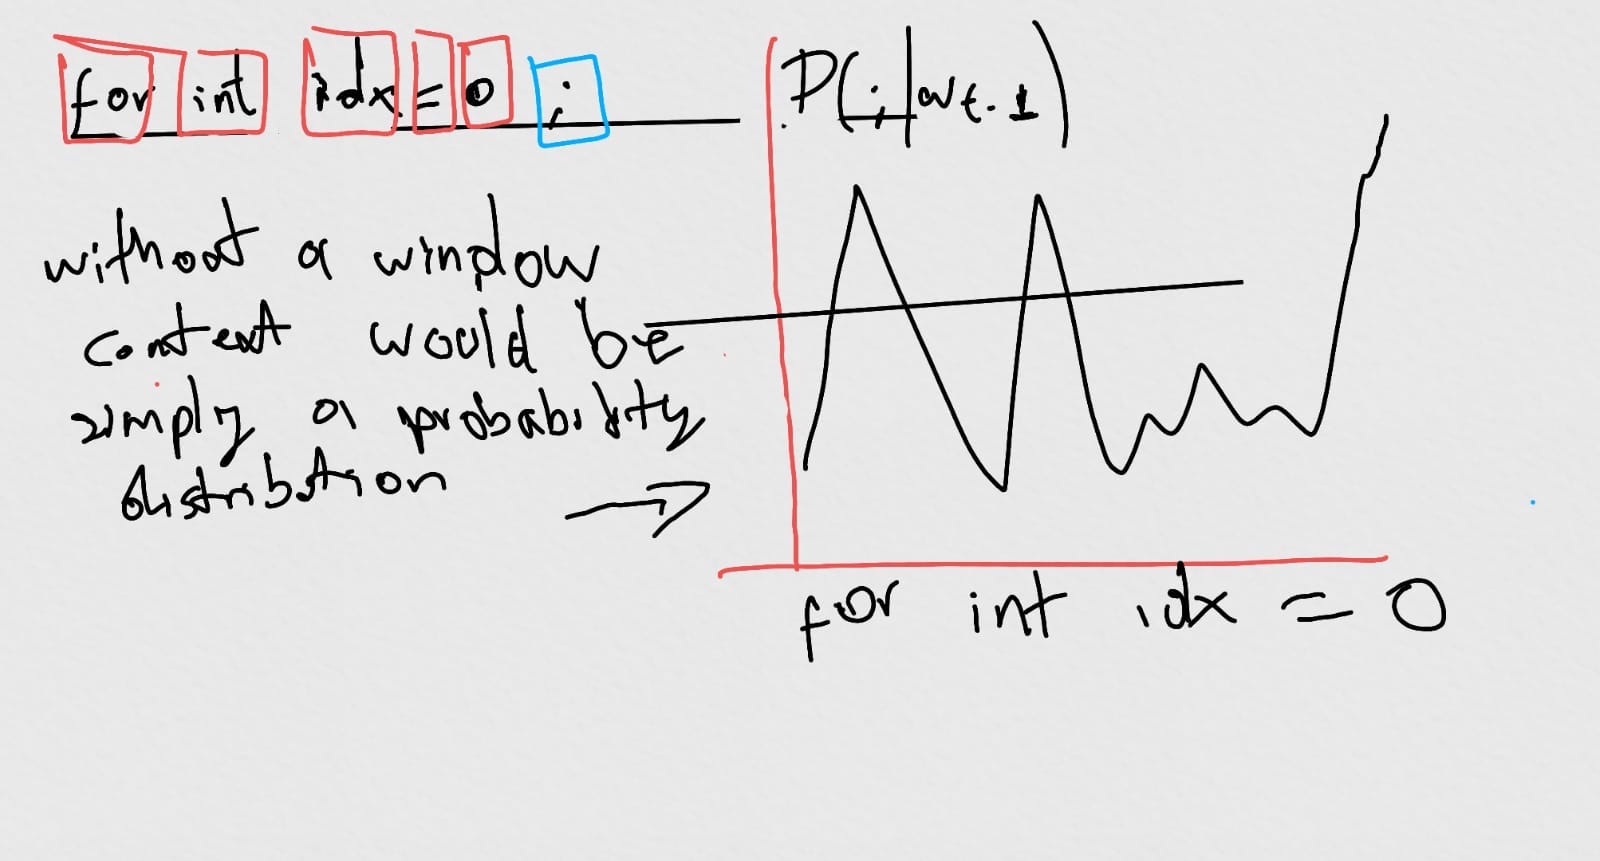 for int idx = 0 ;
without a window
context would be
simply a probability
distribution
P(;|wt-1)
for int idx = 0